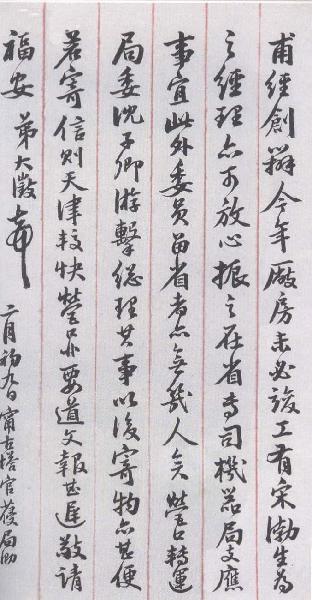 甫經創辦今年廠房未必竣工有宋渤生為
之經理亦可放心振之在省專司機器局支應
事宜此外委員留省者亦無幾人矣營口轉運
局委沈子卿游擊總理其事以後寄物亦甚便
若寄信則天津較快營口非要道文報甚遲敬請
福安 弟大澂頓首
二月初九日甯古塔官局